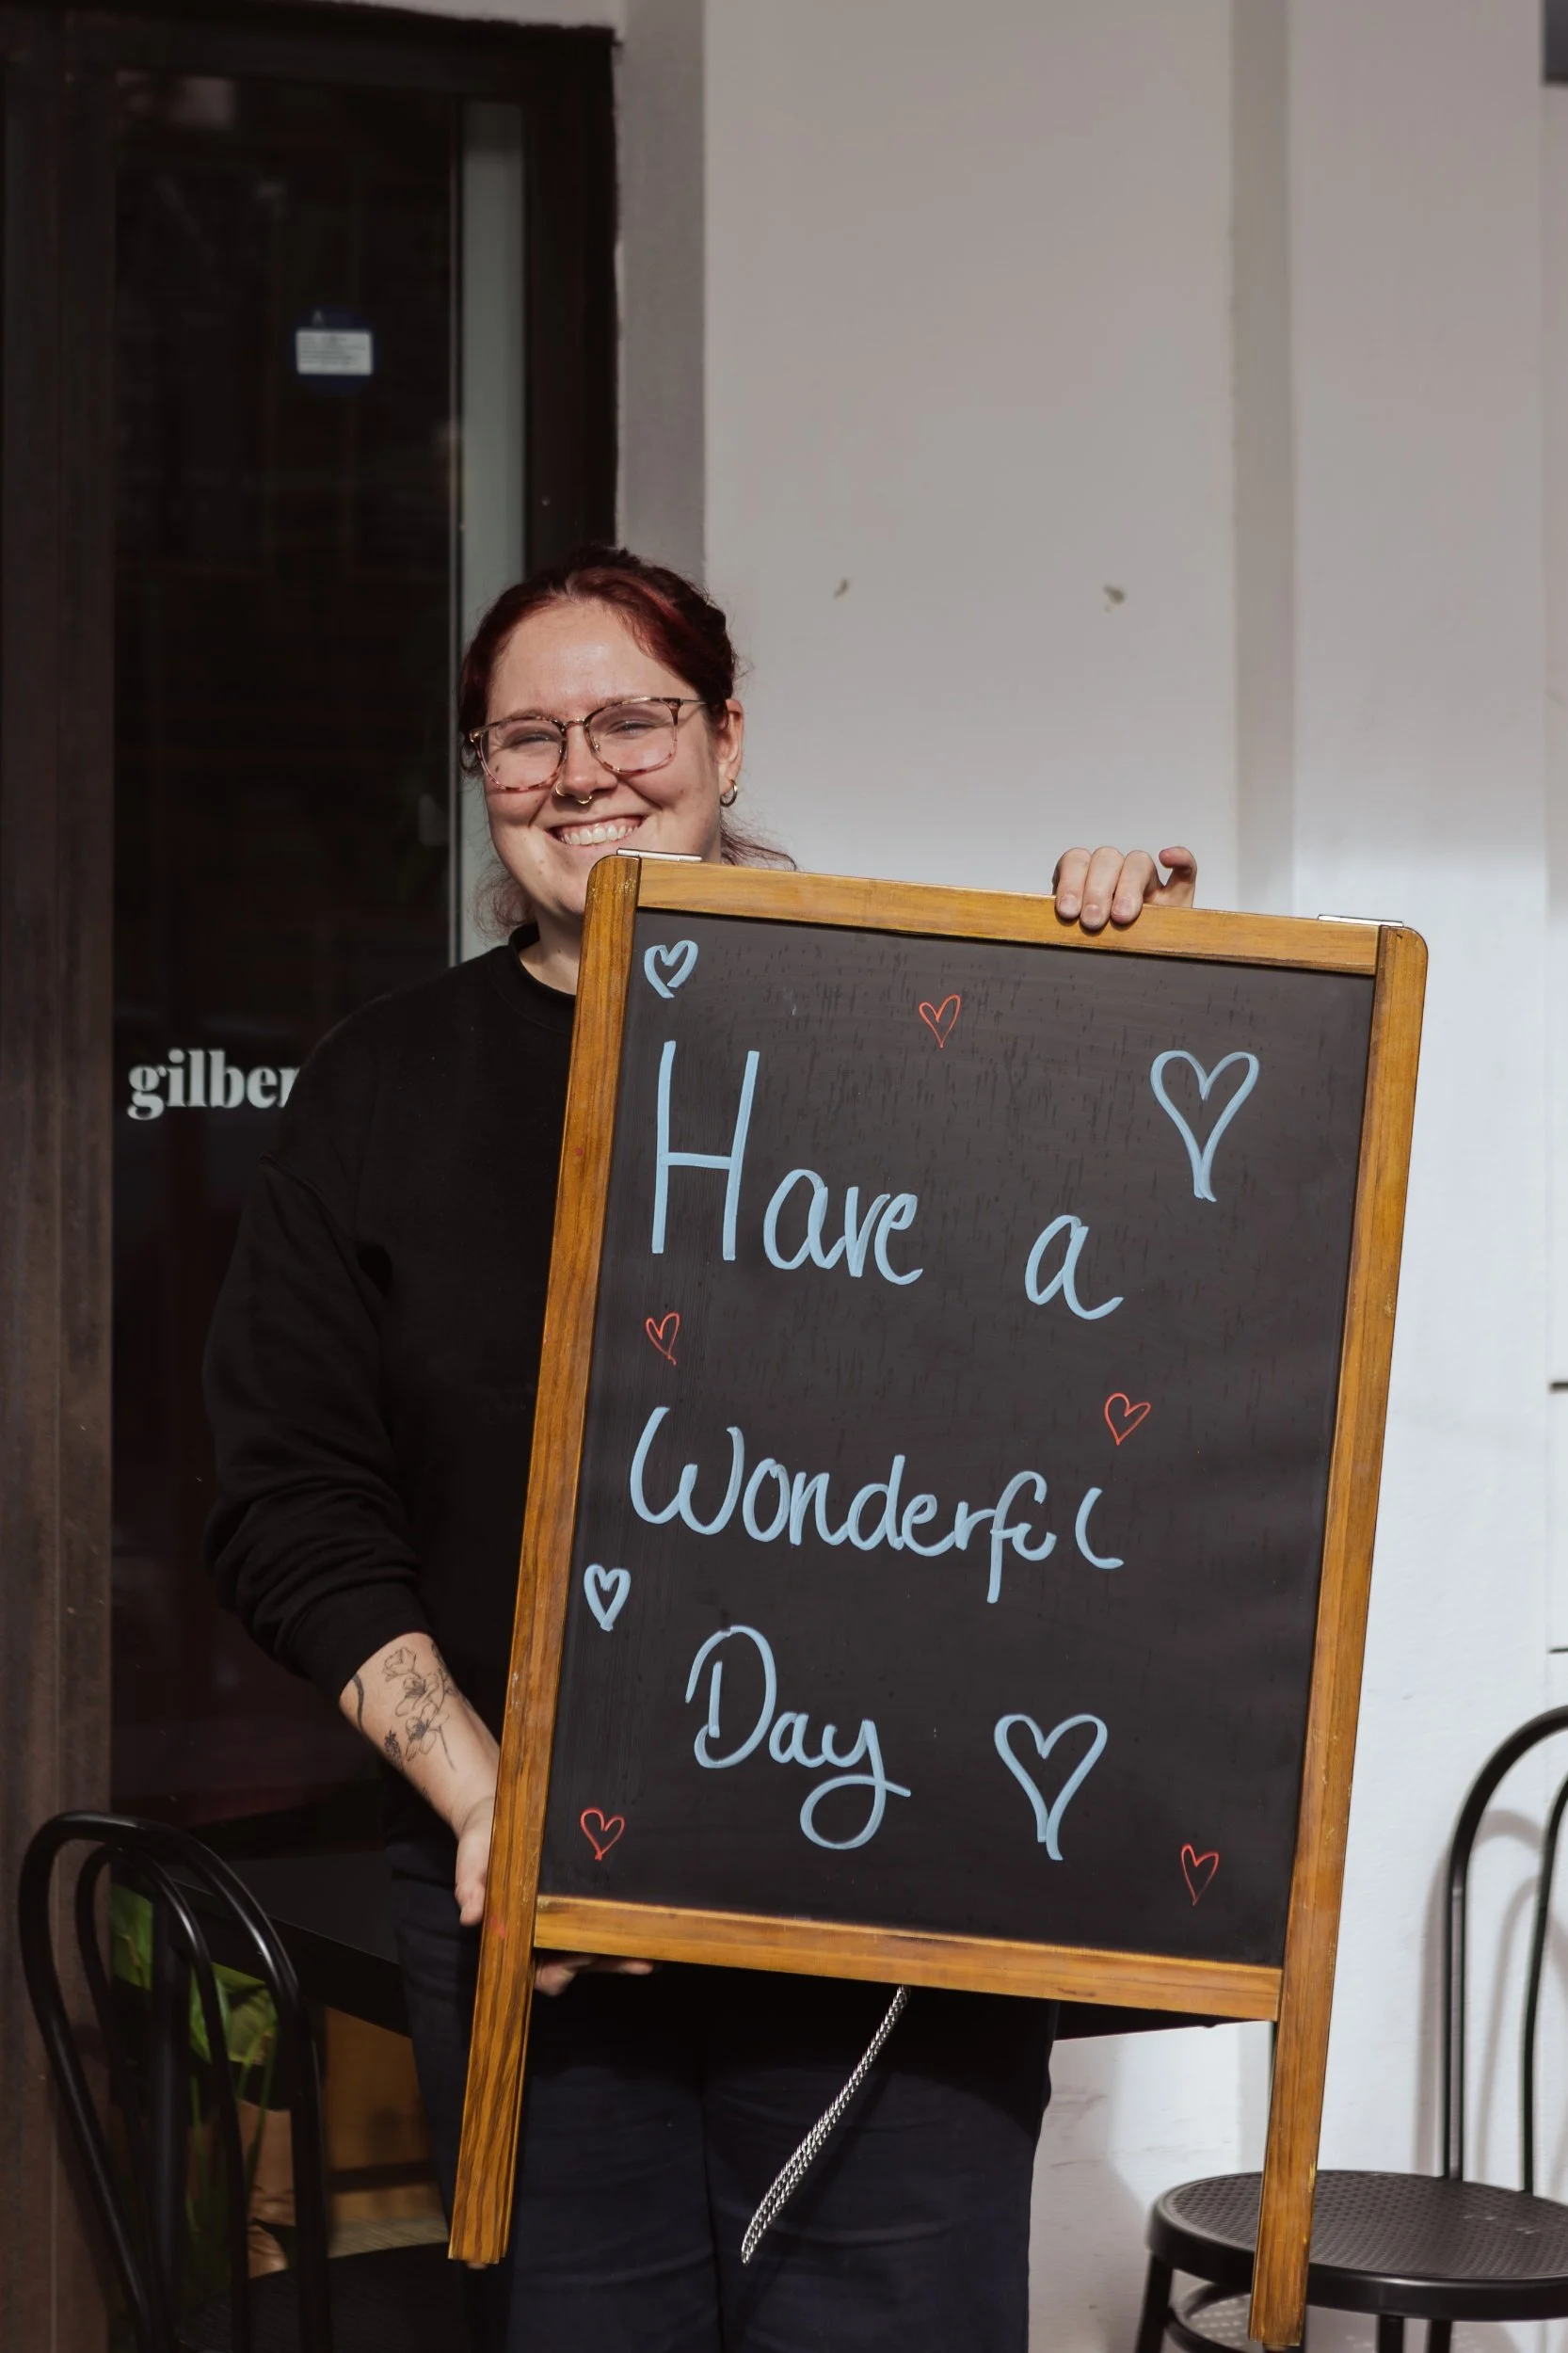 gilber
Have a
Wonderful
Day